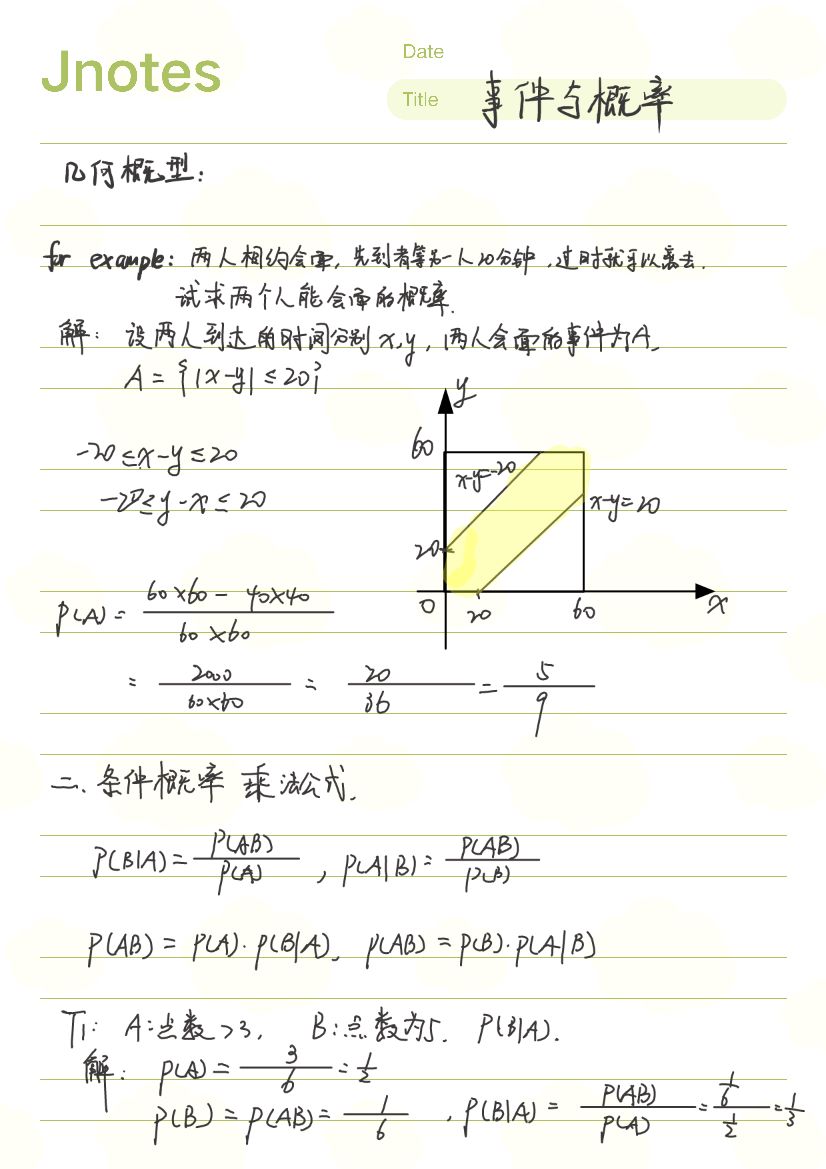 Jnotes
Date
Title 事件与概率
几何概型:
for example: 两人相约会面, 先到者等另一人20分钟, 过时就可以离去.
试求两个人能会面的概率.
解: 设两人到达的时间分别x,y, 两人会面的事件为A.
A={|x-y|≤20}
y
-20≤x-y≤20
60
x-y=-20
-20≤y-x≤20
x-y=20
20
0 20 60 x
P(A)= (60×60-40×40)/(60×60)
= 2000/(60×60) = 20/36 = 5/9
二、条件概率 乘法公式.
P(B|A)= P(AB)/P(A) , P(A|B)= P(AB)/P(B)
P(AB)=P(A)·P(B|A), P(AB)=P(B)·P(A|B)
T1: A:点数>3, B:点数为5. P(B|A).
解: P(A)= 3/6 = 1/2
P(B)=P(AB)= 1/6 , P(B|A)= P(AB)/P(A) = (1/6)/(1/2) = 1/3